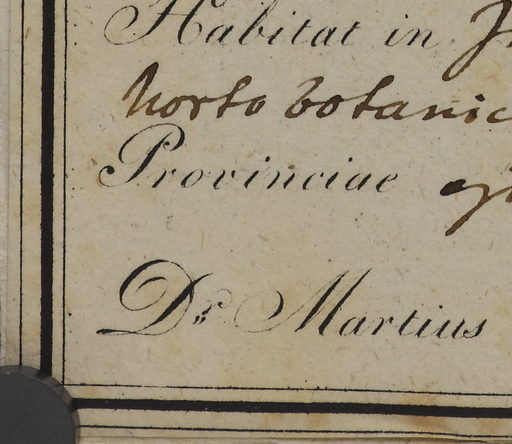 Habitat in
horto botanic
Provinciae
Dr. Martius